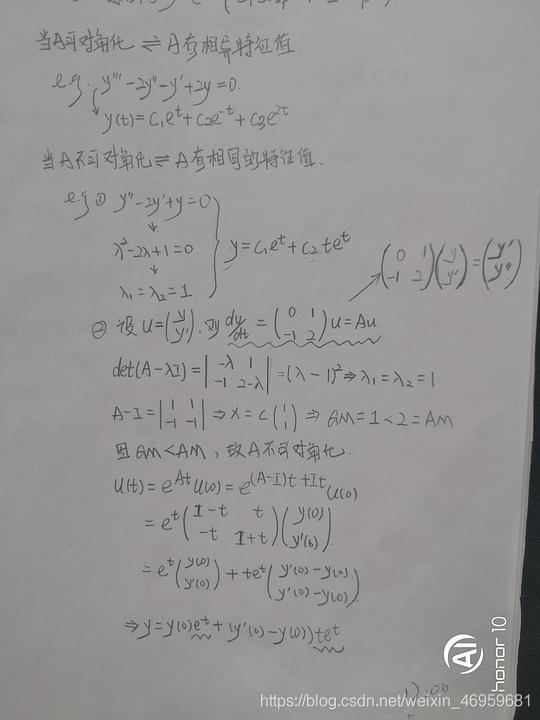 当A可对角化 ⇌ A有相异特征值.
e.g. y''' - 2y'' - y' + 2y = 0.
y(t) = C₁eᵗ + C₂e⁻ᵗ + C₃e²ᵗ
当A不可对角化 ⇌ A有相同的特征值.
e.g ①. y'' - 2y' + y = 0
↓
λ² - 2λ + 1 = 0
↓
λ₁ = λ₂ = 1
} y = C₁eᵗ + C₂ teᵗ
(0 1; -1 2)(y; y') = (y'; y'')
② 设 U = (y; y'), 则 du/dt = (0 1; -1 2) U = Au
det(A-λI) = |-λ 1; -1 2-λ| = (λ-1)² ⇒ λ₁ = λ₂ = 1
A-I = |-1 1; -1 1| ⇒ x = c(1; 1) ⇒ GM = 1 < 2 = AM
因 GM < AM, 故A不可对角化.
U(t) = eᴬᵗ U(0) = e^(A-I)t + It U(0)
= eᵗ (I-t t; -t I+t)(y(0); y'(0))
= eᵗ (y(0); y'(0)) + teᵗ (y'(0) - y(0); y'(0) - y(0))
⇒ y = y(0)eᵗ + (y'(0) - y(0))teᵗ
AI honor 10
https://blog.csdn.net/weixin_46959681